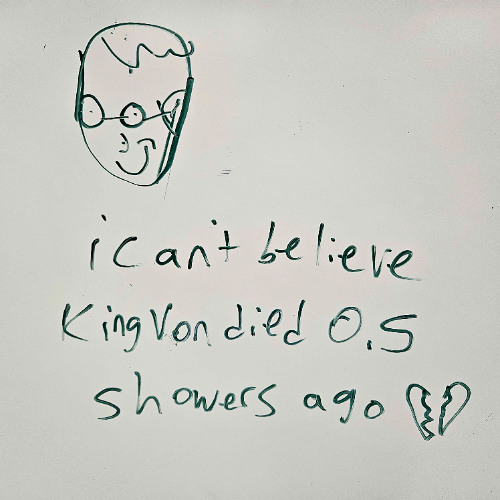 i can't believe
King Von died 0.5
showers ago 💔